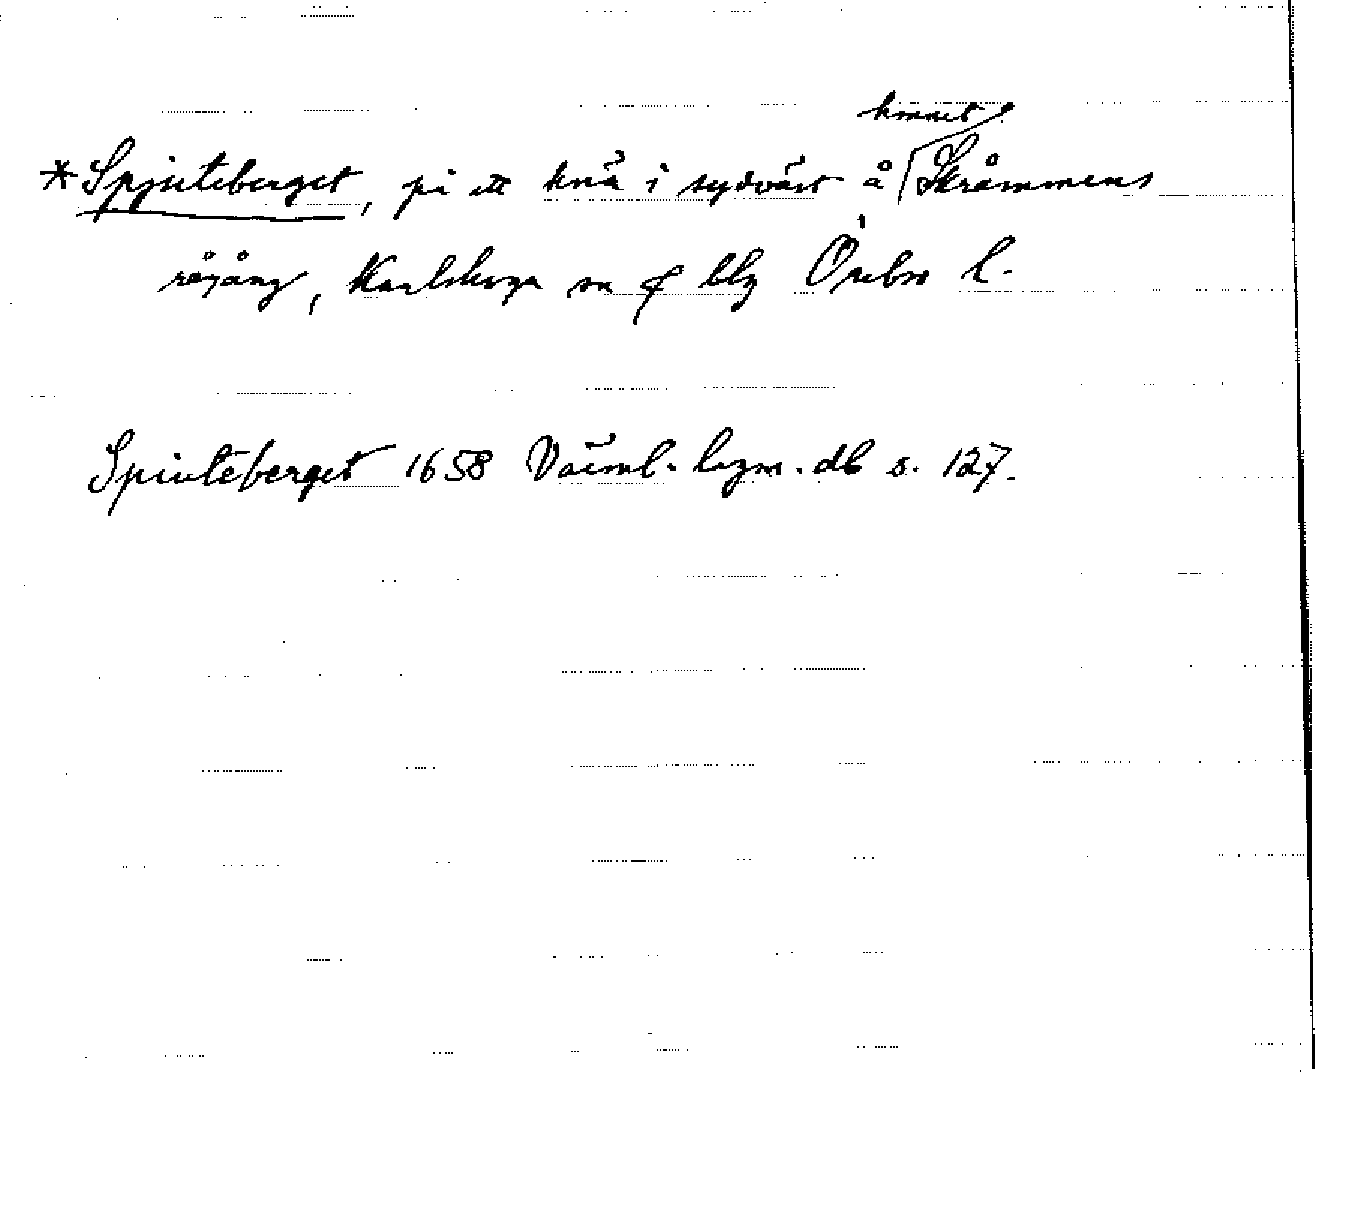 hmnet
*Spjuteberget, på ett knä i sydväst å Skråmmens
rågång, Karlskoga sn o blg Örebro l.
Spiuteberget 1658 Värml. lagm. db s. 127.